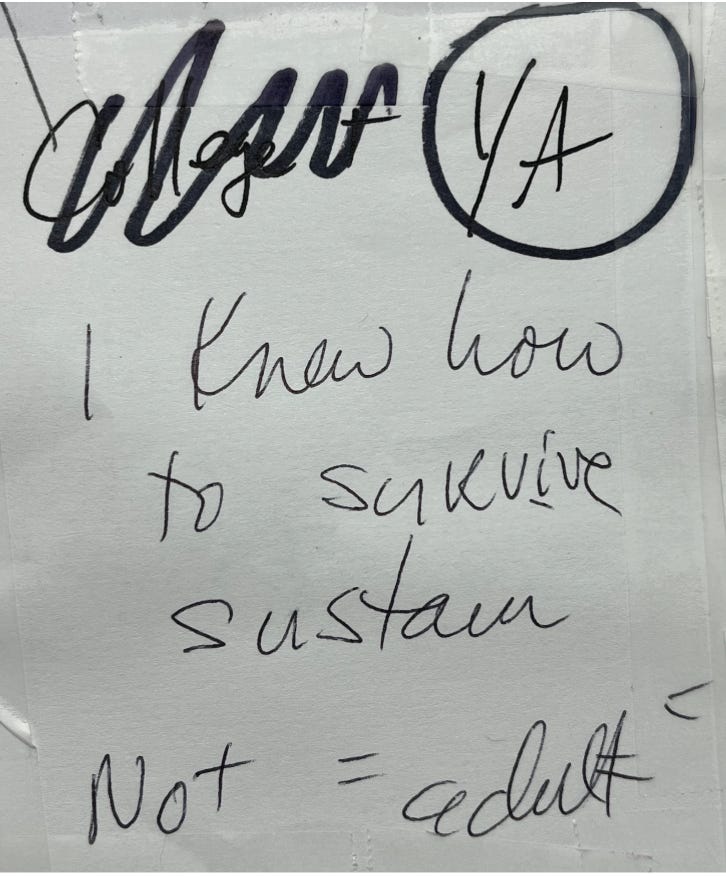 College YA
I Know how
to survive
sustain
Not = adult <